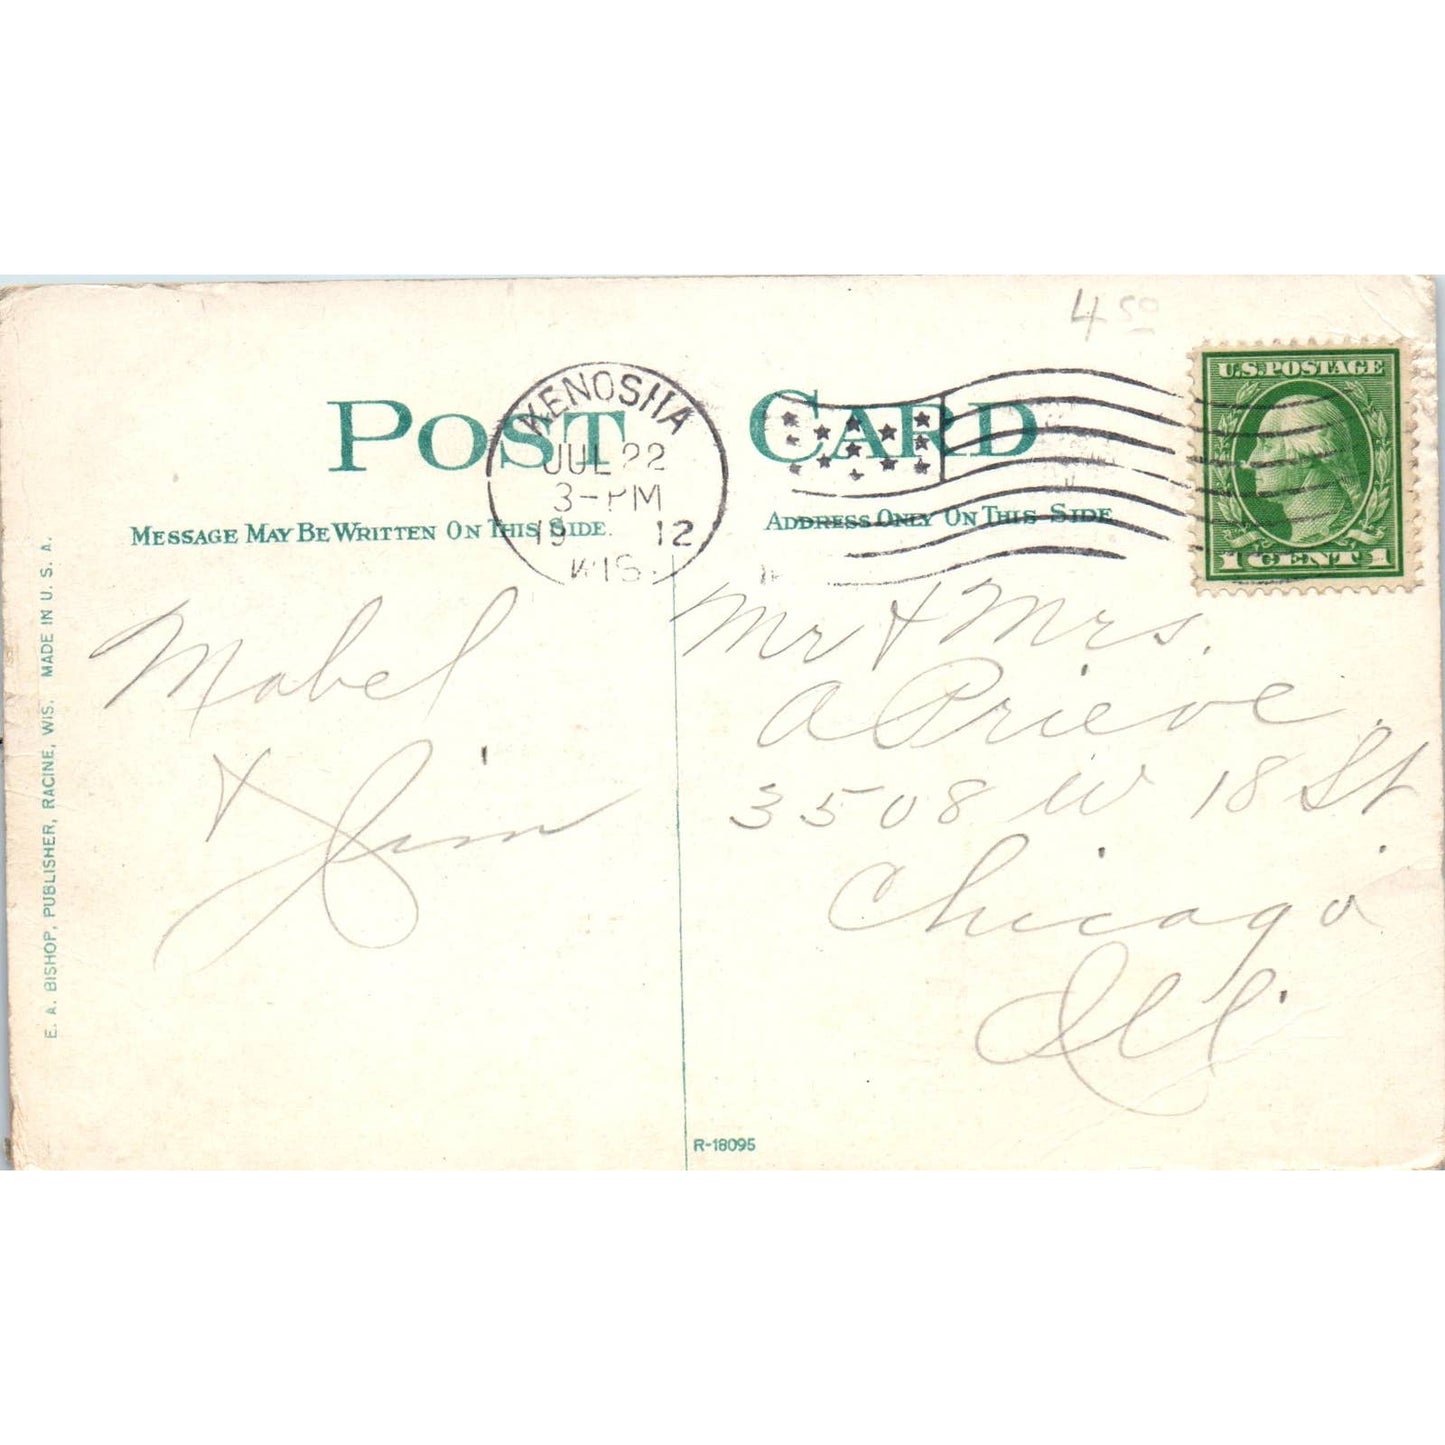 4 50
POST CARD
U.S. POSTAGE
1 CENT 1
KENOSHA
JUL 22
3-PM
19 12
WIS.
MESSAGE MAY BE WRITTEN ON THIS SIDE.
ADDRESS ONLY ON THIS SIDE
Mabel
& Jim
Mr & Mrs.
A Prieve
3508 W 18 St
Chicago
Ill.
E. A. BISHOP, PUBLISHER, RACINE, WIS. MADE IN U. S. A.
R-18095